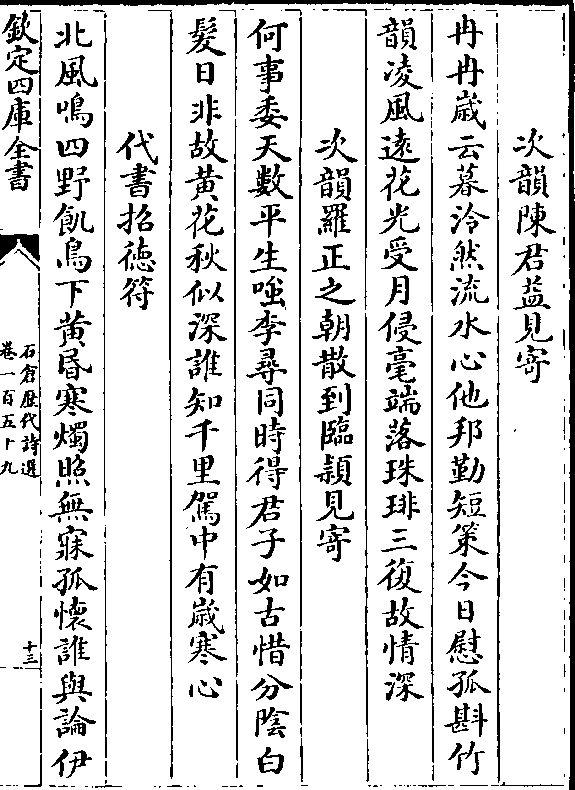 次韻陳君益見寄
冉冉嵗云暮泠然流水心他邦勤短策今日慰孤斟竹
韻凌風逺花光受月侵毫端落珠琲三復故情深
次韻羅正之朝散到臨潁見寄
何事委天數平生嗤李尋同時得君子如古惜分陰白
髮日非故黄花秋似深誰知千里駕中有嵗寒心
代書招徳符
北風鳴四野飢鳥下黄昬寒燭照無寐孤懐誰與論伊
欽定四庫全書
石倉歴代詩選
卷一百五十九
十三